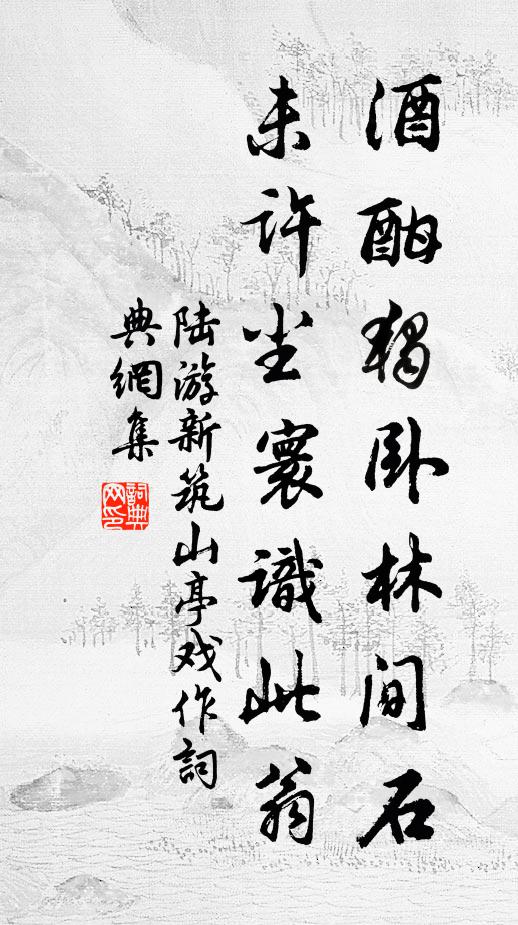 酒酣独卧林间石
未许尘寰識此翁
陆游新筑山亭戏作詞
典網集
詞典网印